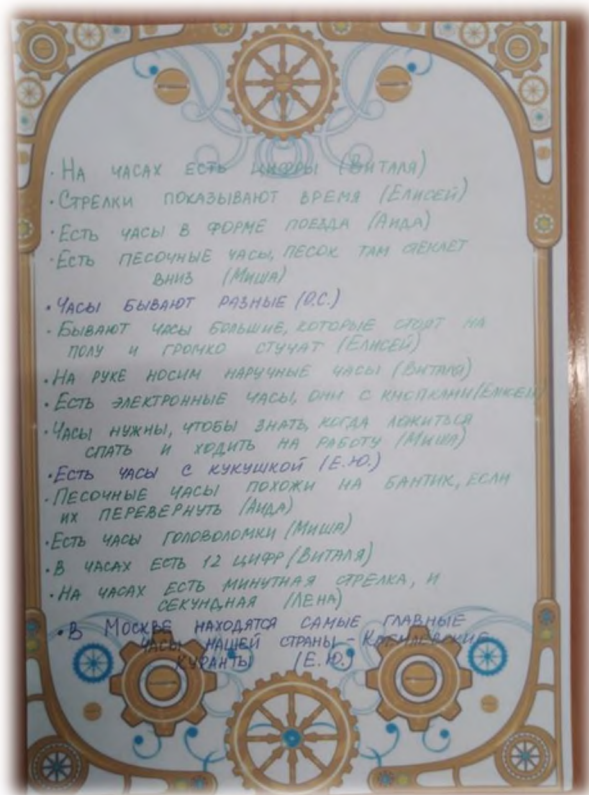 · На часах есть цифры (Виталя)
· Стрелки показывают время (Елисей)
· Есть часы в форме поезда (Аида)
· Есть песочные часы, песок там стекает
вниз (Миша)
· Часы бывают разные (О.С.)
· Бывают часы большие, которые стоят на
полу и громко стучат (Елисей)
· На руке носим наручные часы (Виталя)
· Есть электронные часы, они с кнопками (Елисей)
· Часы нужны, чтобы знать, когда ложиться
спать и ходить на работу (Миша)
· Есть часы с кукушкой (Е.Ю.)
· Песочные часы похожи на бантик, если
их перевернуть (Аида)
· Есть часы головоломки (Миша)
· В часах есть 12 цифр (Виталя)
· На часах есть минутная стрелка, и
секундная (Лена)
· В Москве находятся самые главные
часы нашей страны - Кремлевские
куранты (Е.Ю.)